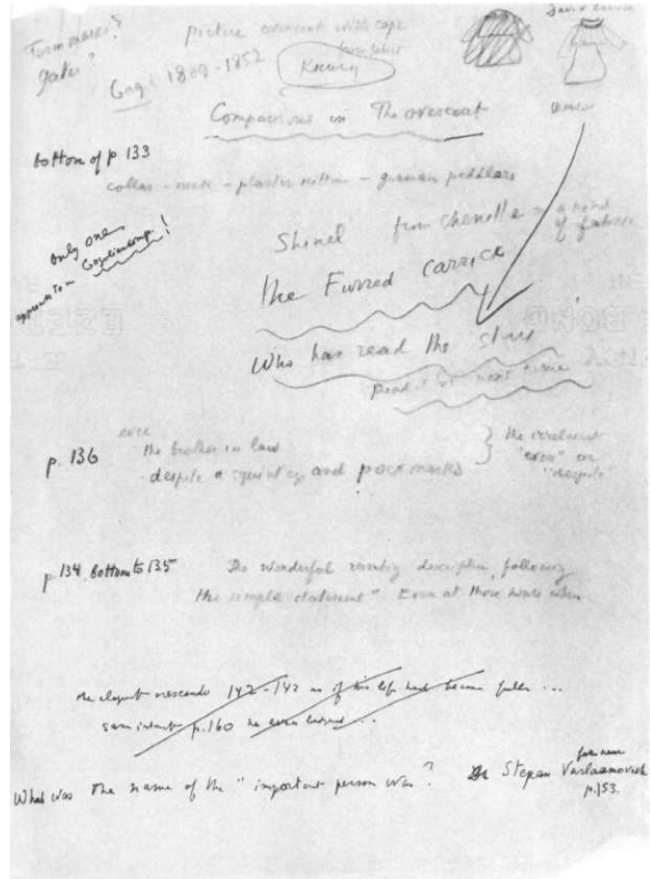 gates?
picture overcoat with cape
Gog 1809-1852
Comparisons in The overcoat
bottom of p 133
collar - neck - plaster kittens - german peddlers
only one
!
Shinel' from chenille - a kind
of
the Furred carrick
Who has read the story
Read it for next time
p. 136
even
the brother in law
despite a squint eye and pockmarks
the irrelevant
"even" or
"despite"
p 134, bottom to 135
The wonderful evening description, following
the simple statement "Even at those hours when
the eloquent crescendo 142-143 as if his life had become fuller ...
p. 160 he even
What was the name of the "important person was"?
Stepan Varlaamovich
p. 153.